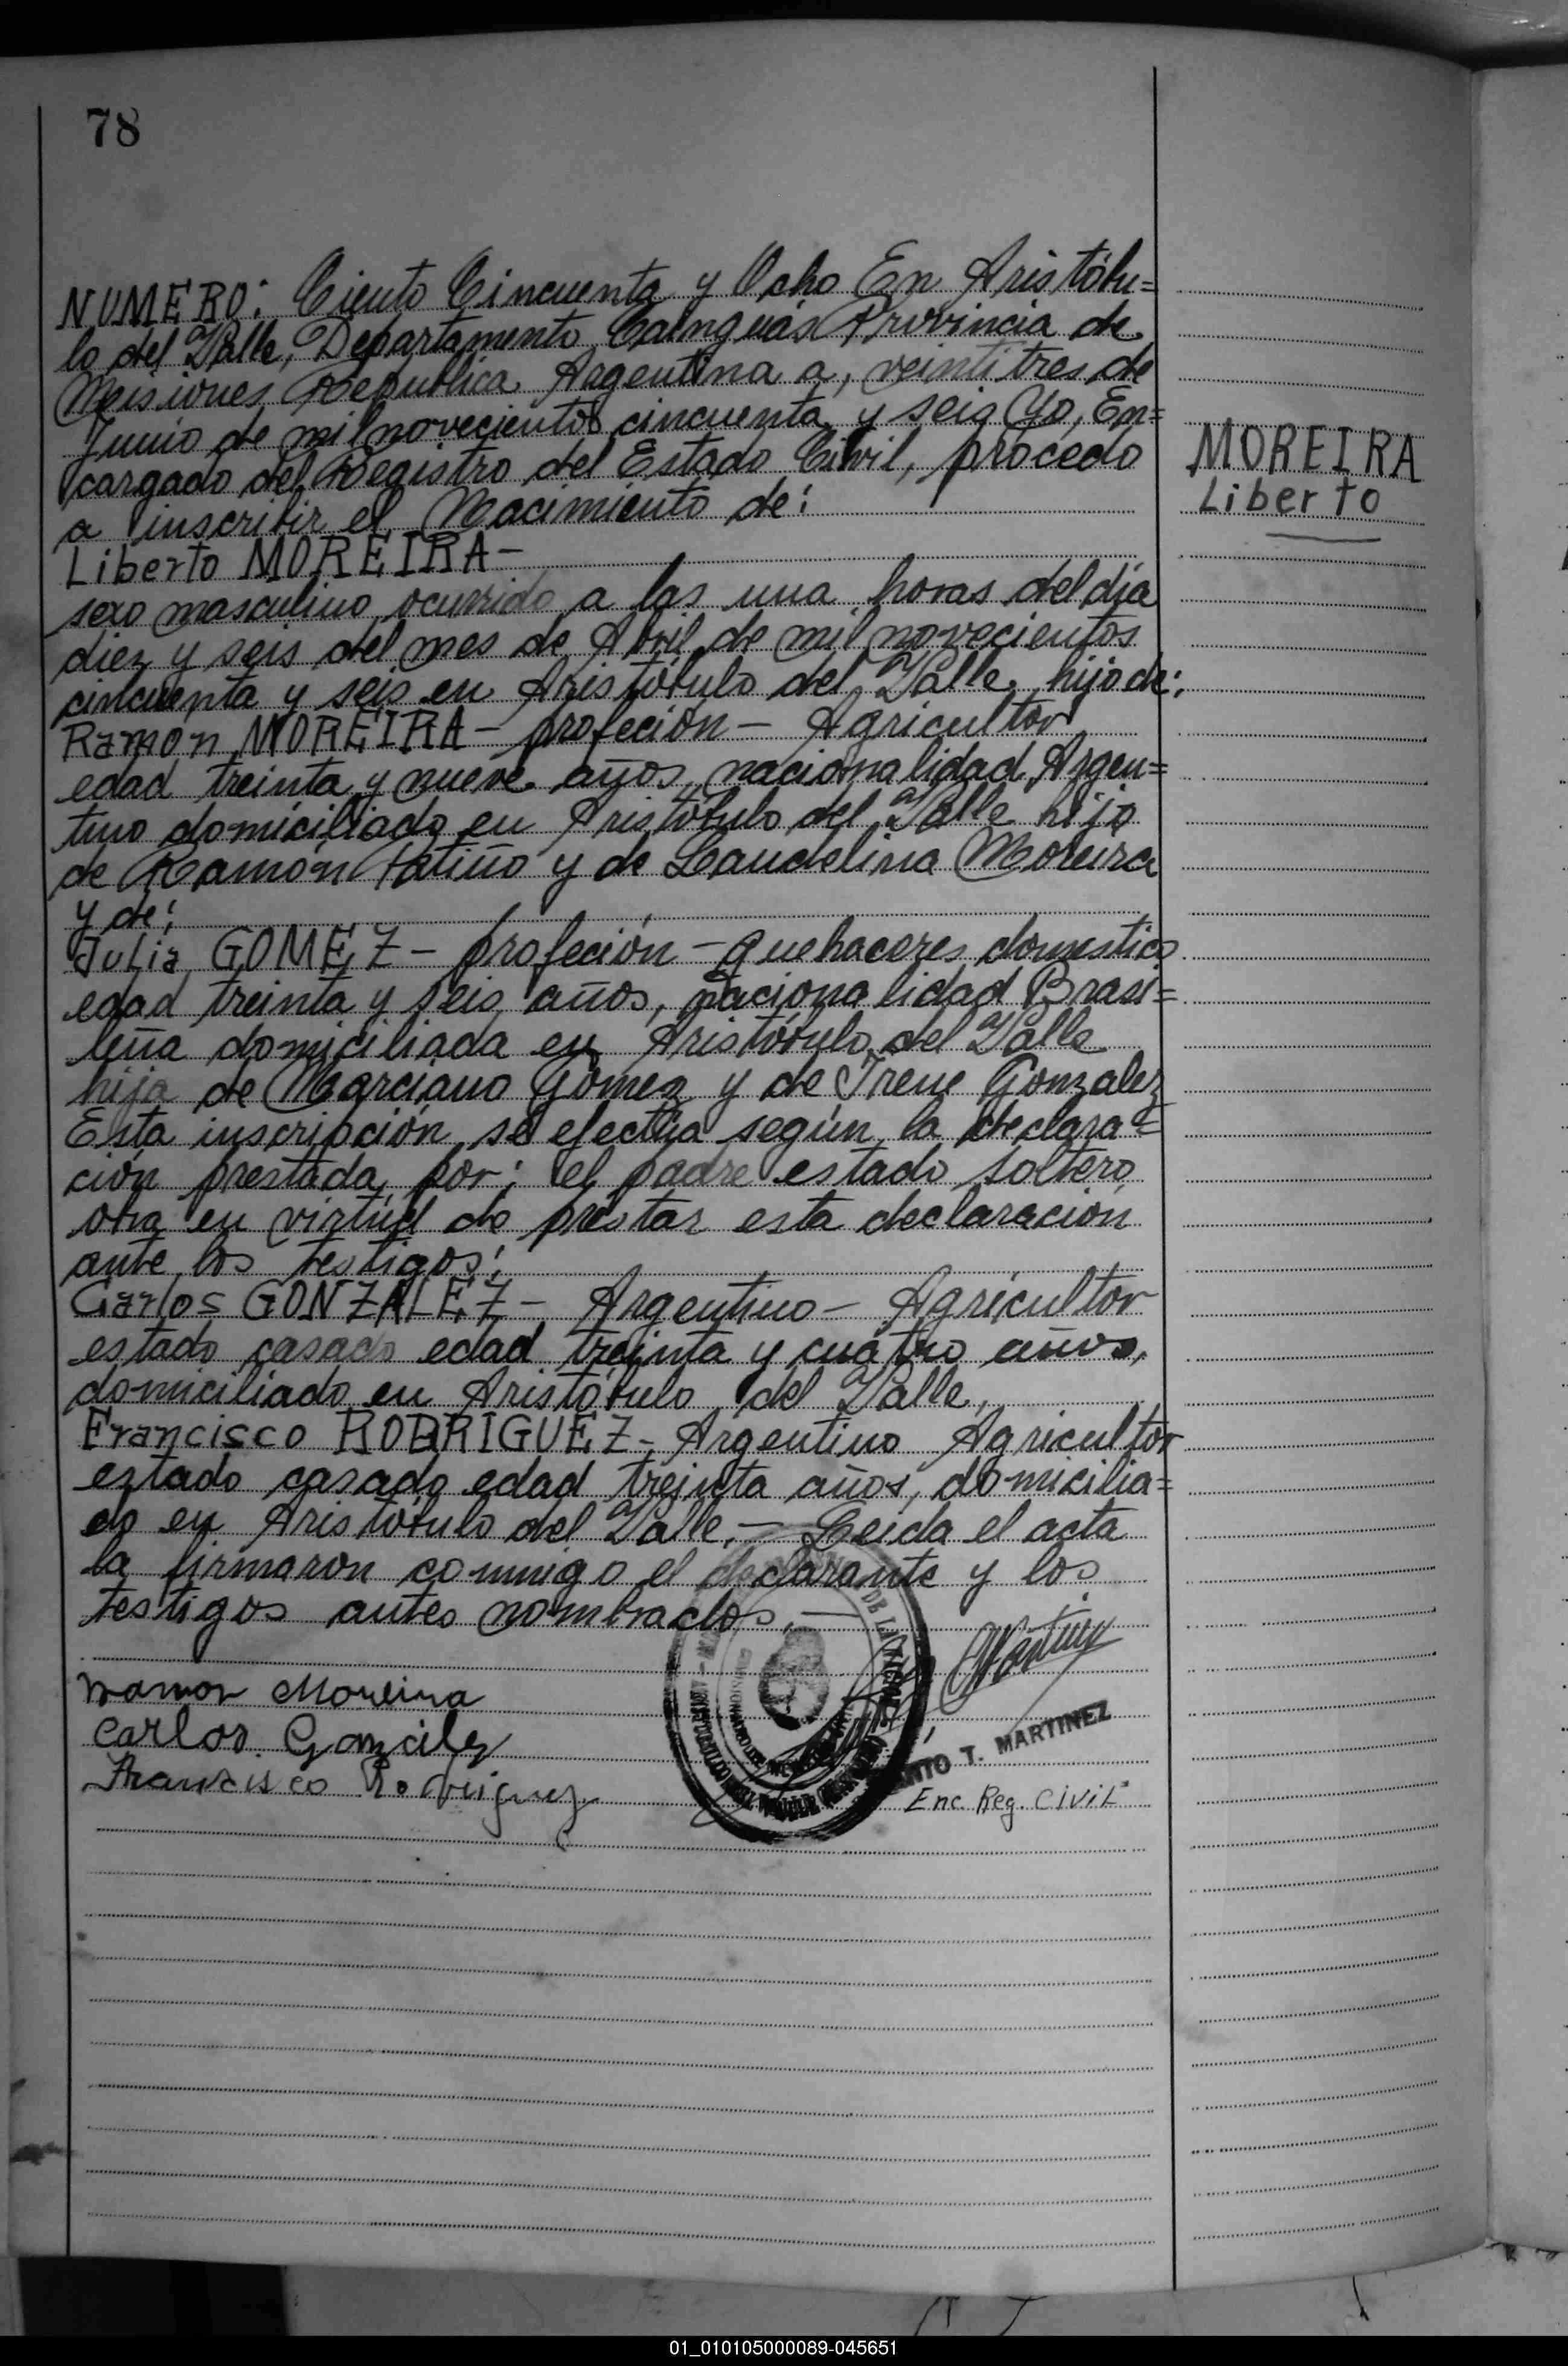 78
NUMERO: Ciento Cincuenta y Ocho En Aristóbu=
lo del Valle, Departamento Cainguás Provincia de
Misiones Republica Argentina a, veintitres de
Junio de mil novecientos cincuenta y seis Yo, En=
cargado del Registro del Estado Civil, procedo
a inscribir el Nacimiento de:
MOREIRA
Liberto
Liberto MOREIRA-
sexo masculino ocurrido a las una horas del día
diez y seis del mes de Abril de mil novecientos
cincuenta y seis en Aristóbulo del Valle, hijo de:
Ramon MOREIRA- profeción- Agricultor
edad treinta y nueve años, nacionalidad Argen=
tino domiciliado en Aristóbulo del Valle hijo
de Ramón Patiño y de Candelina Moreira
y de:
Julia GOMEZ- profeción- quehaceres domestico
edad treinta y seis años, nacionalidad Brasi=
leña domiciliada en Aristóbulo del Valle
hija de Marciano Gomez y de Irene Gonzalez
Esta inscripción, se efectúa según la declara=
ción prestada por: el padre estado soltero
en virtud de prestar esta declaración
ante los testigos:
Carlos GONZALEZ- Argentino- Agricultor
estado casado edad treinta y cuatro años,
domiciliado en Aristóbulo del Valle,
Francisco RODRIGUEZ- Argentino Agricultor
estado casado edad treinta años, domicilia=
do en Aristóbulo del Valle.- Leida el acta
la firmaron conmigo el declarante y los
testigos antes nombrados.-
ramon Moreira
Carlos Gonzalez
Francisco Rodriguez
T. MARTINEZ
Enc. Reg. Civil
01_010105000089-045651